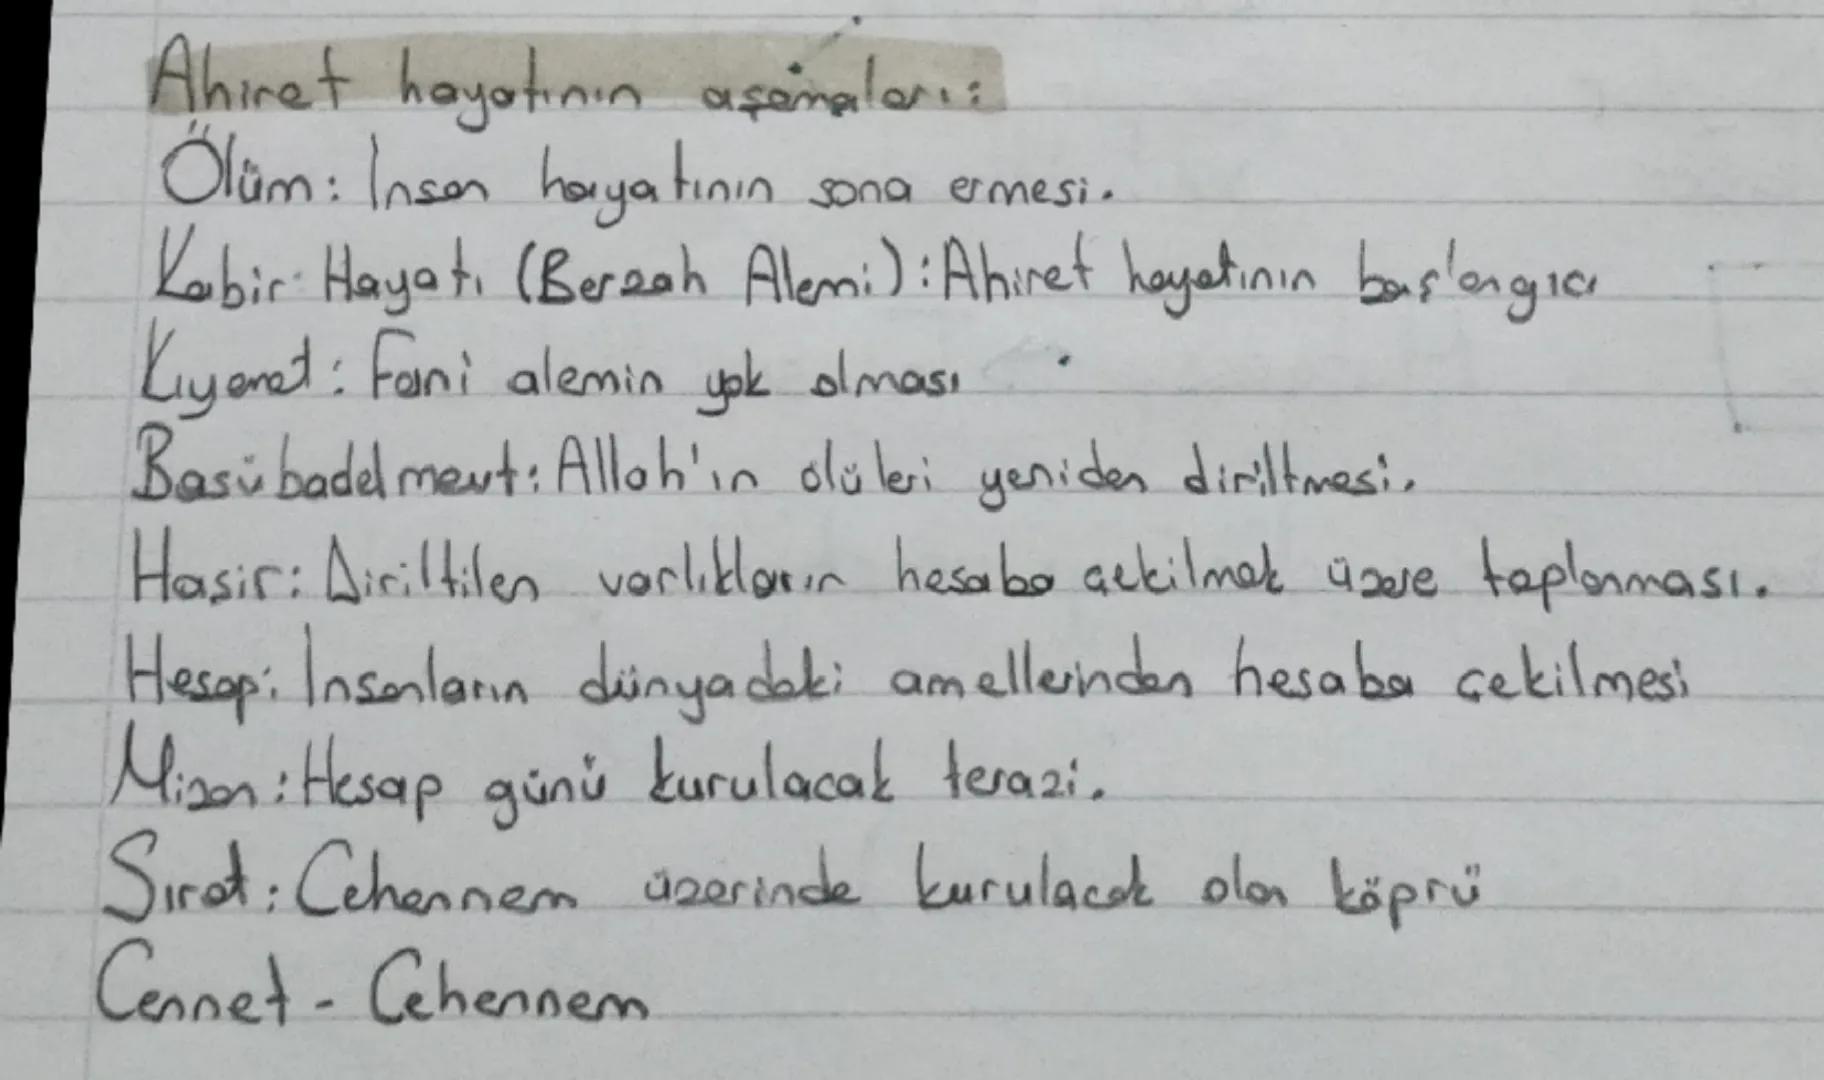 Ahiret hayatının aşamaları:
Ölüm: İnsan hayatının sona ermesi.
Kabir Hayatı (Berzah Alemi): Ahiret hayatının başlangıcı
Kıyamet: Fani alemin yok olması
Basübadelmevt: Allah'ın ölüleri yeniden diriltmesi.
Hasir: Diriltilen varlıkların hesaba çekilmek üzere toplanması.
Hesap: İnsanların dünyadaki amellerinden hesaba çekilmesi
Mizan: Hesap günü kurulacak terazi.
Sırat: Cehennem üzerinde kurulacak olan köprü
Cennet - Cehennem